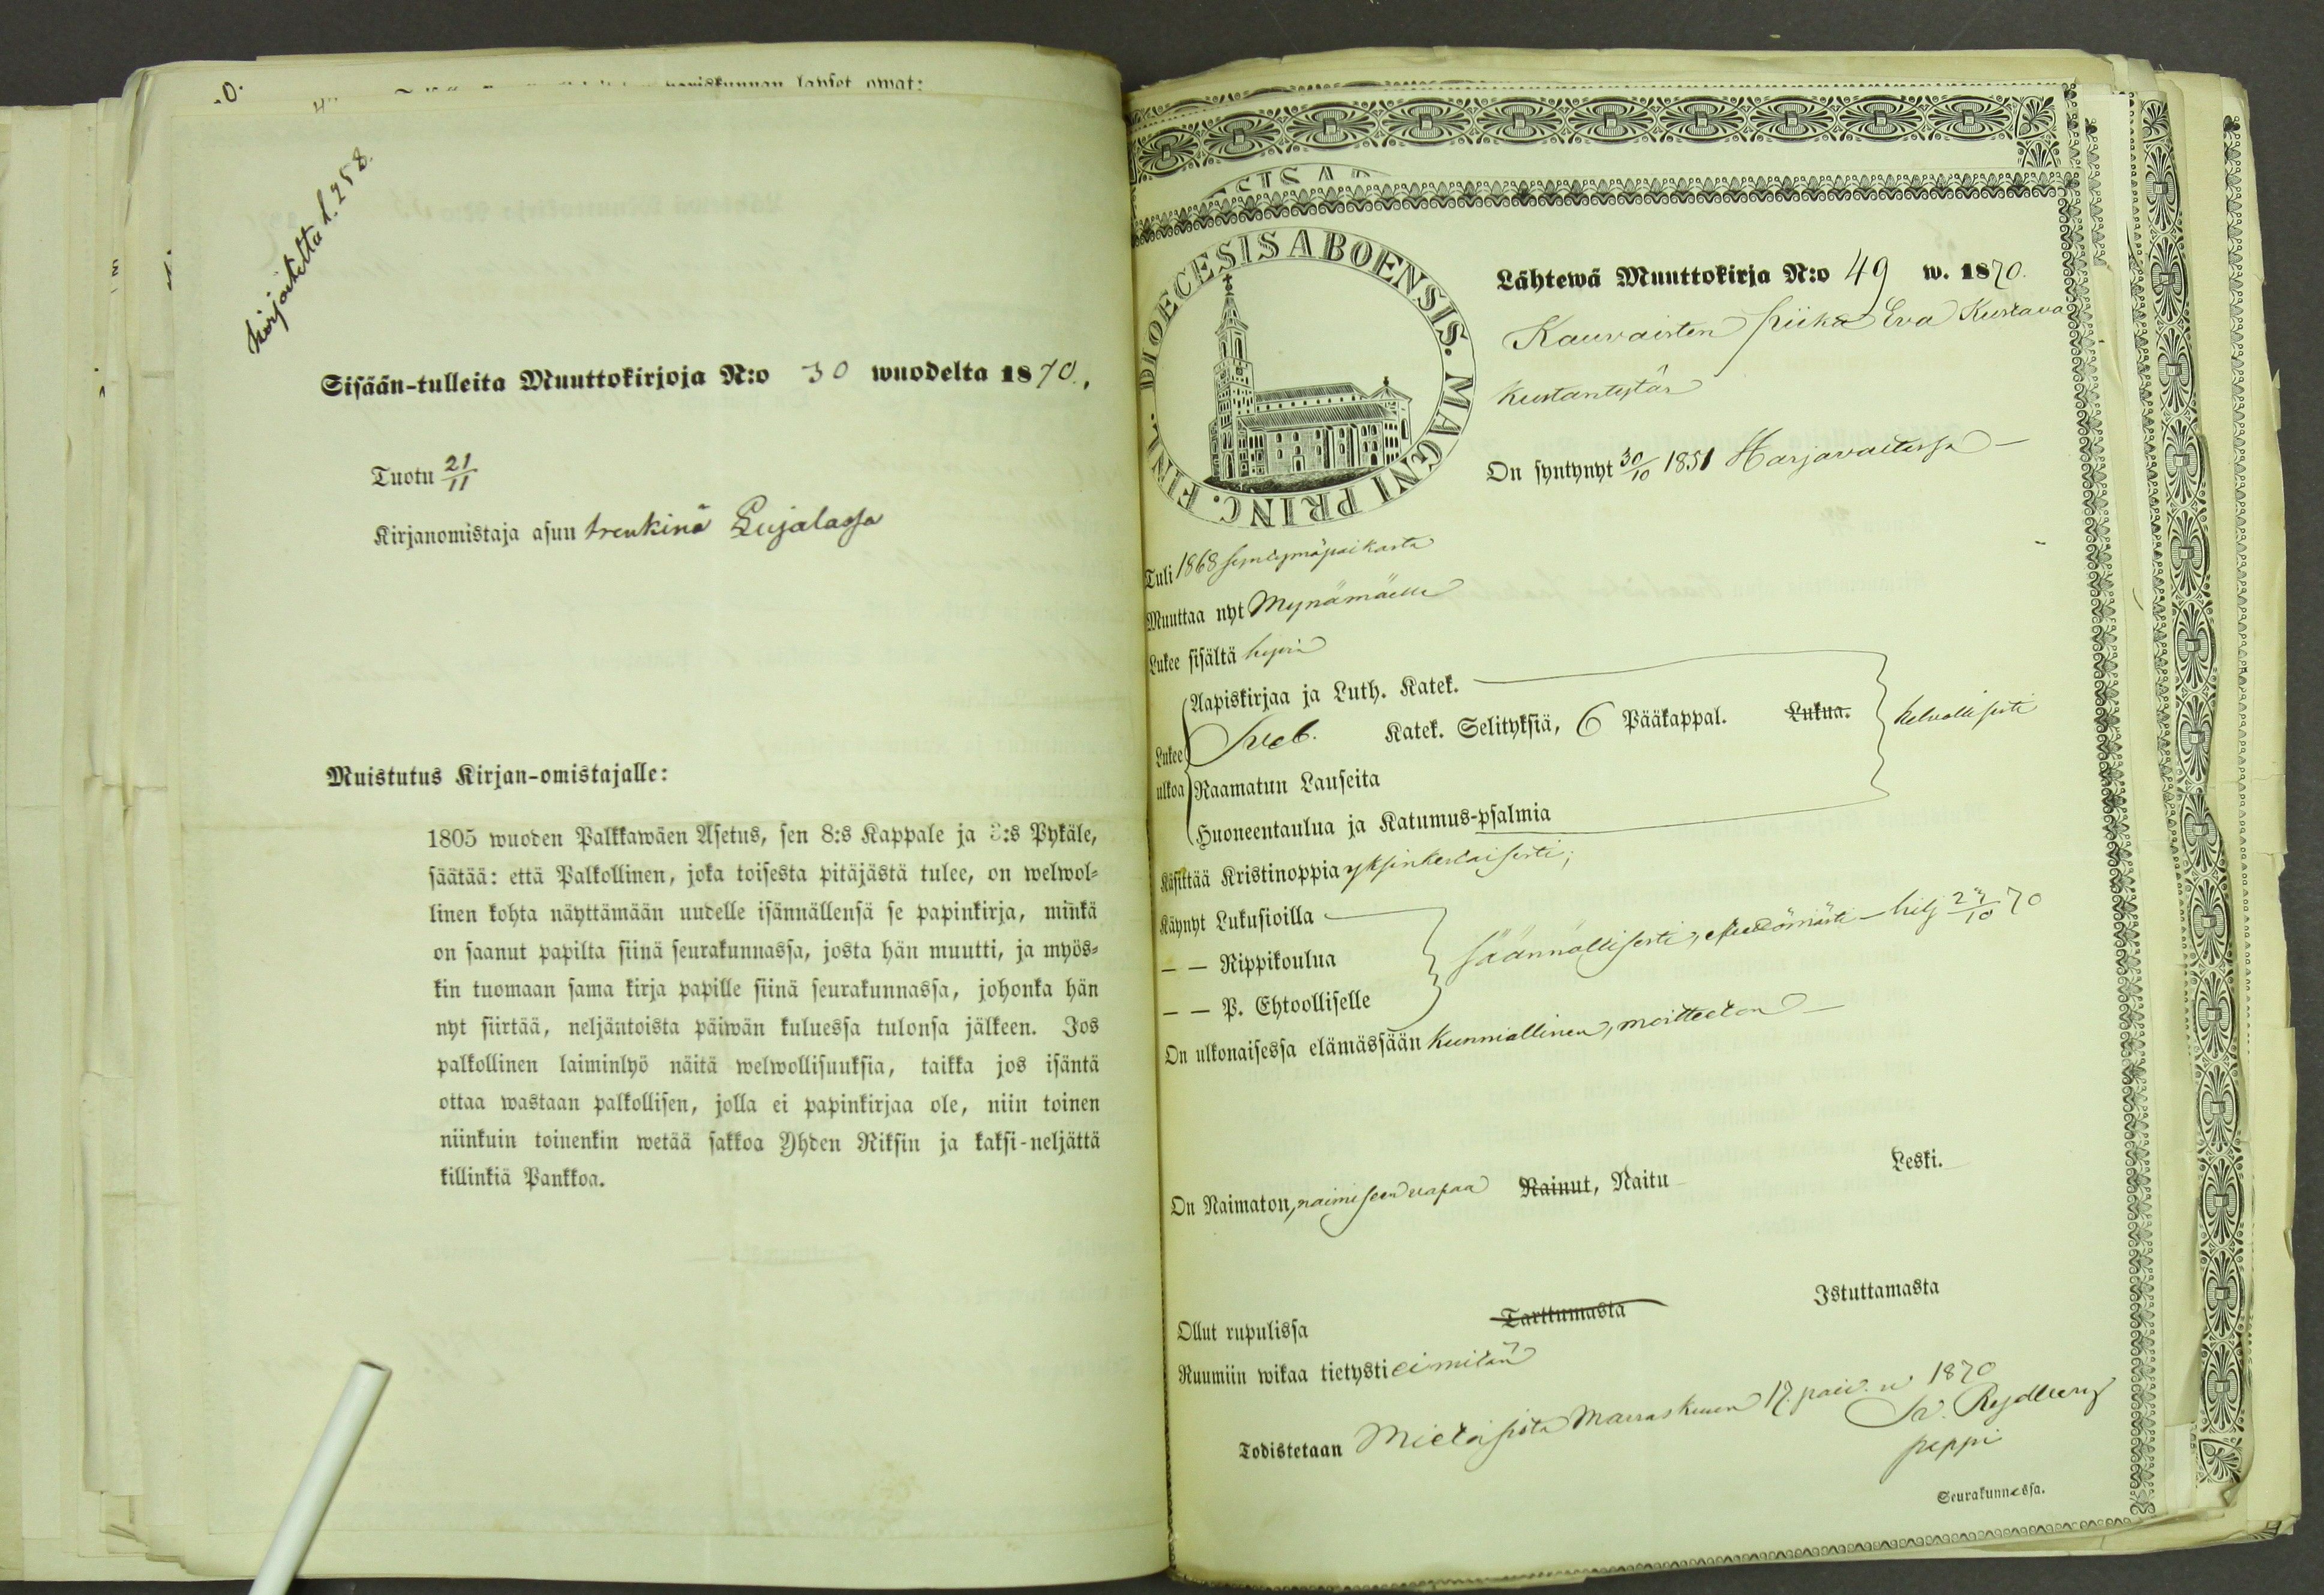 kirjoitettu l. 258.
Sisään-tulleita Muuttokirjoja N:o 30 wuodelta 1870.
Tuotu 21/11
Kirjanomistaja asuu trenkinä Lujalassa
Muistutus Kirjan-omistajalle:
1805 wuoden Palkkawäen Asetus, sen 8:s Kappale ja 3:s Pykäle,
säätää: että Palkollinen, joka toisesta pitäjästä tulee, on welwol-
linen kohta näyttämään uudelle isännällensä se papinkirja, minkä
on saanut papilta siinä seurakunnassa, josta hän muutti, ja myös-
kin tuomaan sama kirja papille siinä seurakunnassa, johonka hän
nyt siirtää, neljäntoista päiwän kuluessa tulonsa jälkeen. Jos
palkollinen laiminlyö näitä welwollisuuksia, taikka jos isäntä
ottaa wastaan palkollisen, jolla ei papinkirjaa ole, niin toinen
niinkuin toinenkin wetää sakkoa Yhden Riksin ja kaksi-neljättä
killinkiä Pankkoa.
FINL. DIOECESIS ABOENSIS. MAGNI PRINC.
Lähtewä Muuttokirja N:o 49 w. 1870.
Kauvaisten piika Eva Kustava
Kustantytär
On syntynyt 30/10 1851 Harjavallassa
Tuli 1868 syntymäpaikasta
Muuttaa nyt Mynämäelle
Lukee sisältä hyvin
Aapiskirjaa ja Luth. Katek.
Lukee ulkoa Sveb. Katek. Selityksiä, 6 Pääkappal. Lukua. kelvollisesti
Raamatun Lauseita
Huoneentaulua ja Katumus-psalmia
Käsittää Kristinoppia yksinkertaisesti;
Käynyt Lukusioilla
— — Rippikoulua säännöllisesti,
— — P. Ehtoolliselle
On ulkonaisessa elämässään kunniallinen, moitteeton
On Naimaton, naimiseen vapaa Nainut, Naitu Leski.
Ollut rupulissa Tarttumasta Istuttamasta
Ruumiin wikaa tietysti ei mitään
Todistetaan Mietoisista Marraskuun 17. päiv. v 1870
Rydberg
pappi
Seurakunnassa.